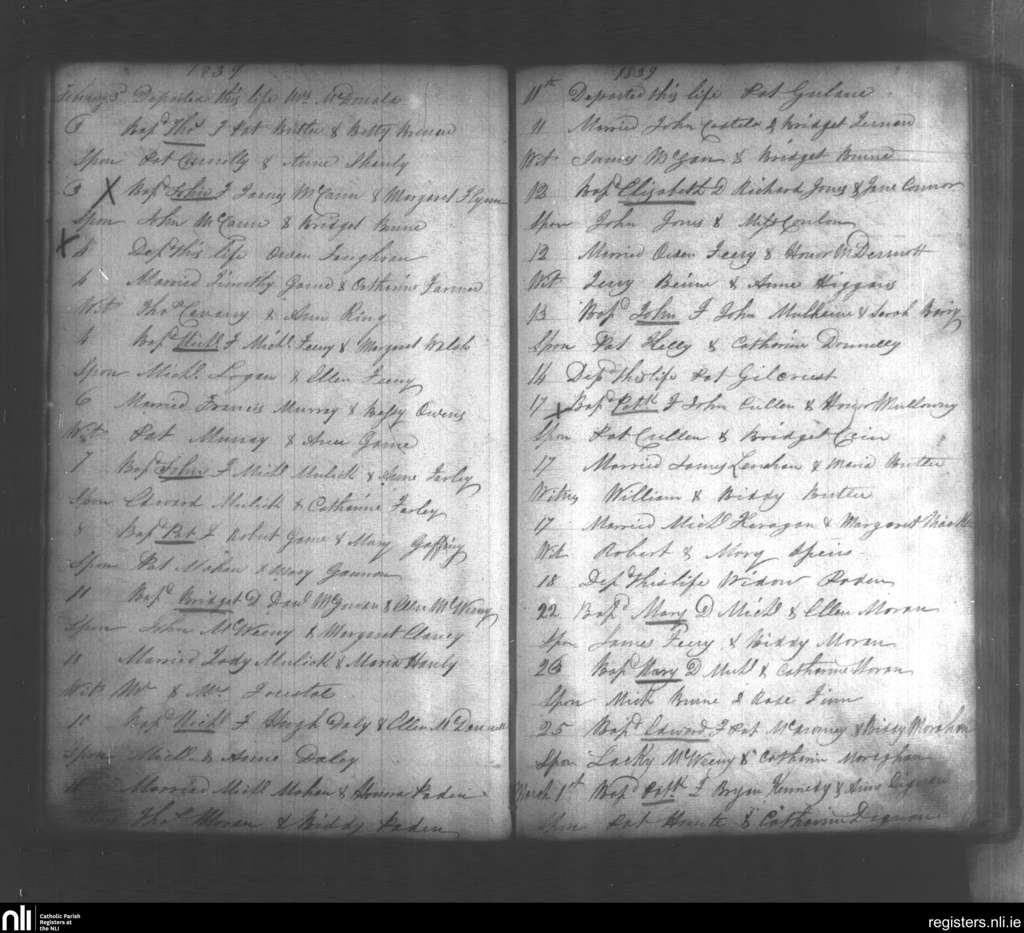 1839
Departed this life Mrs McDonald
3 Bapd Thos F Pat Butler & Betty Brenan
Spon Pat Connolly & Anne Shanly
3 X Bapd John F James McCann & Margaret Flynn
Spon John McCann & Bridget Beirne
X Depd this life Owen
4 Married Timothy Game & Catherine Farmer
Wit Thos Cavany & Ann Ring
Bapd Michl F Michl Feery & Margaret Walsh
Spon Michl Logan & Ellen Feeny
6 Married Francis Murray & Betsy Owens
Wit Pat Murray & Ann Game
7 Bapd John F Michl Mulick & Anne Farley
Spon Edward Mulick & Catherine Farley
8 Bapd Pat F Robert Game & Mary
Spon Pat Mahan & Mary Gannon
11 Bapd Bridget D Danl McGowan & Ellen McWeeny
Spon John McWeeny & Margaret Clancy
11 Married Lady Mulick & Maria Hanly
Wit Mr & Mrs
Bapd Michl F Hugh Daly & Ellen McDonnell
Spon Michl & Anne Daley
Married Michl Mahan & Honora Paden
Thos Moran & Biddy Paden
1839
11th Departed this life Pat
11 Married John Costelo & Bridget
Wit James McGan & Bridget Beirne
12 Bapd Elizabeth D Richard Jones & Jane Connor
Spon John Jones & Miss Conlon
12 Married Owen Feery & Honor McDermott
Wit Terry Beirne & Anne Higgins
13 Bapd John F John Mulheirn & Sarah
Spon Pat Kelly & Catherine Donnelly
14 Depd this life Pat Gilcreest
17 X Bapd Patk F John Cullen & Honor Mullowny
Spon Pat Cullen & Bridget Cain
17 Married James Lenahan & Maria Butler
Witns William & Biddy Butler
17 Married Michl Keragan & Margaret
Wit Robert & Mary Speirs
18 Depd this life Widow Paden
22 Bapd Mary D Michl & Ellen Moran
Spon James Feery & Biddy Moran
23 Bapd Mary D Michl & Catherine Moran
Spon Mick Beirne & Rose Finn
25 Bapd Edward F Pat & Biddy Monahan
Spon Lacky McWeeny & Catherine Monaghan
March 1st Bapd Patk F Bryan Kennedy & Ann Dignan
Spon Pat Hunte & Catherine Dignan
nli Catholic Parish
Registers at
the NLI
registers.nli.ie